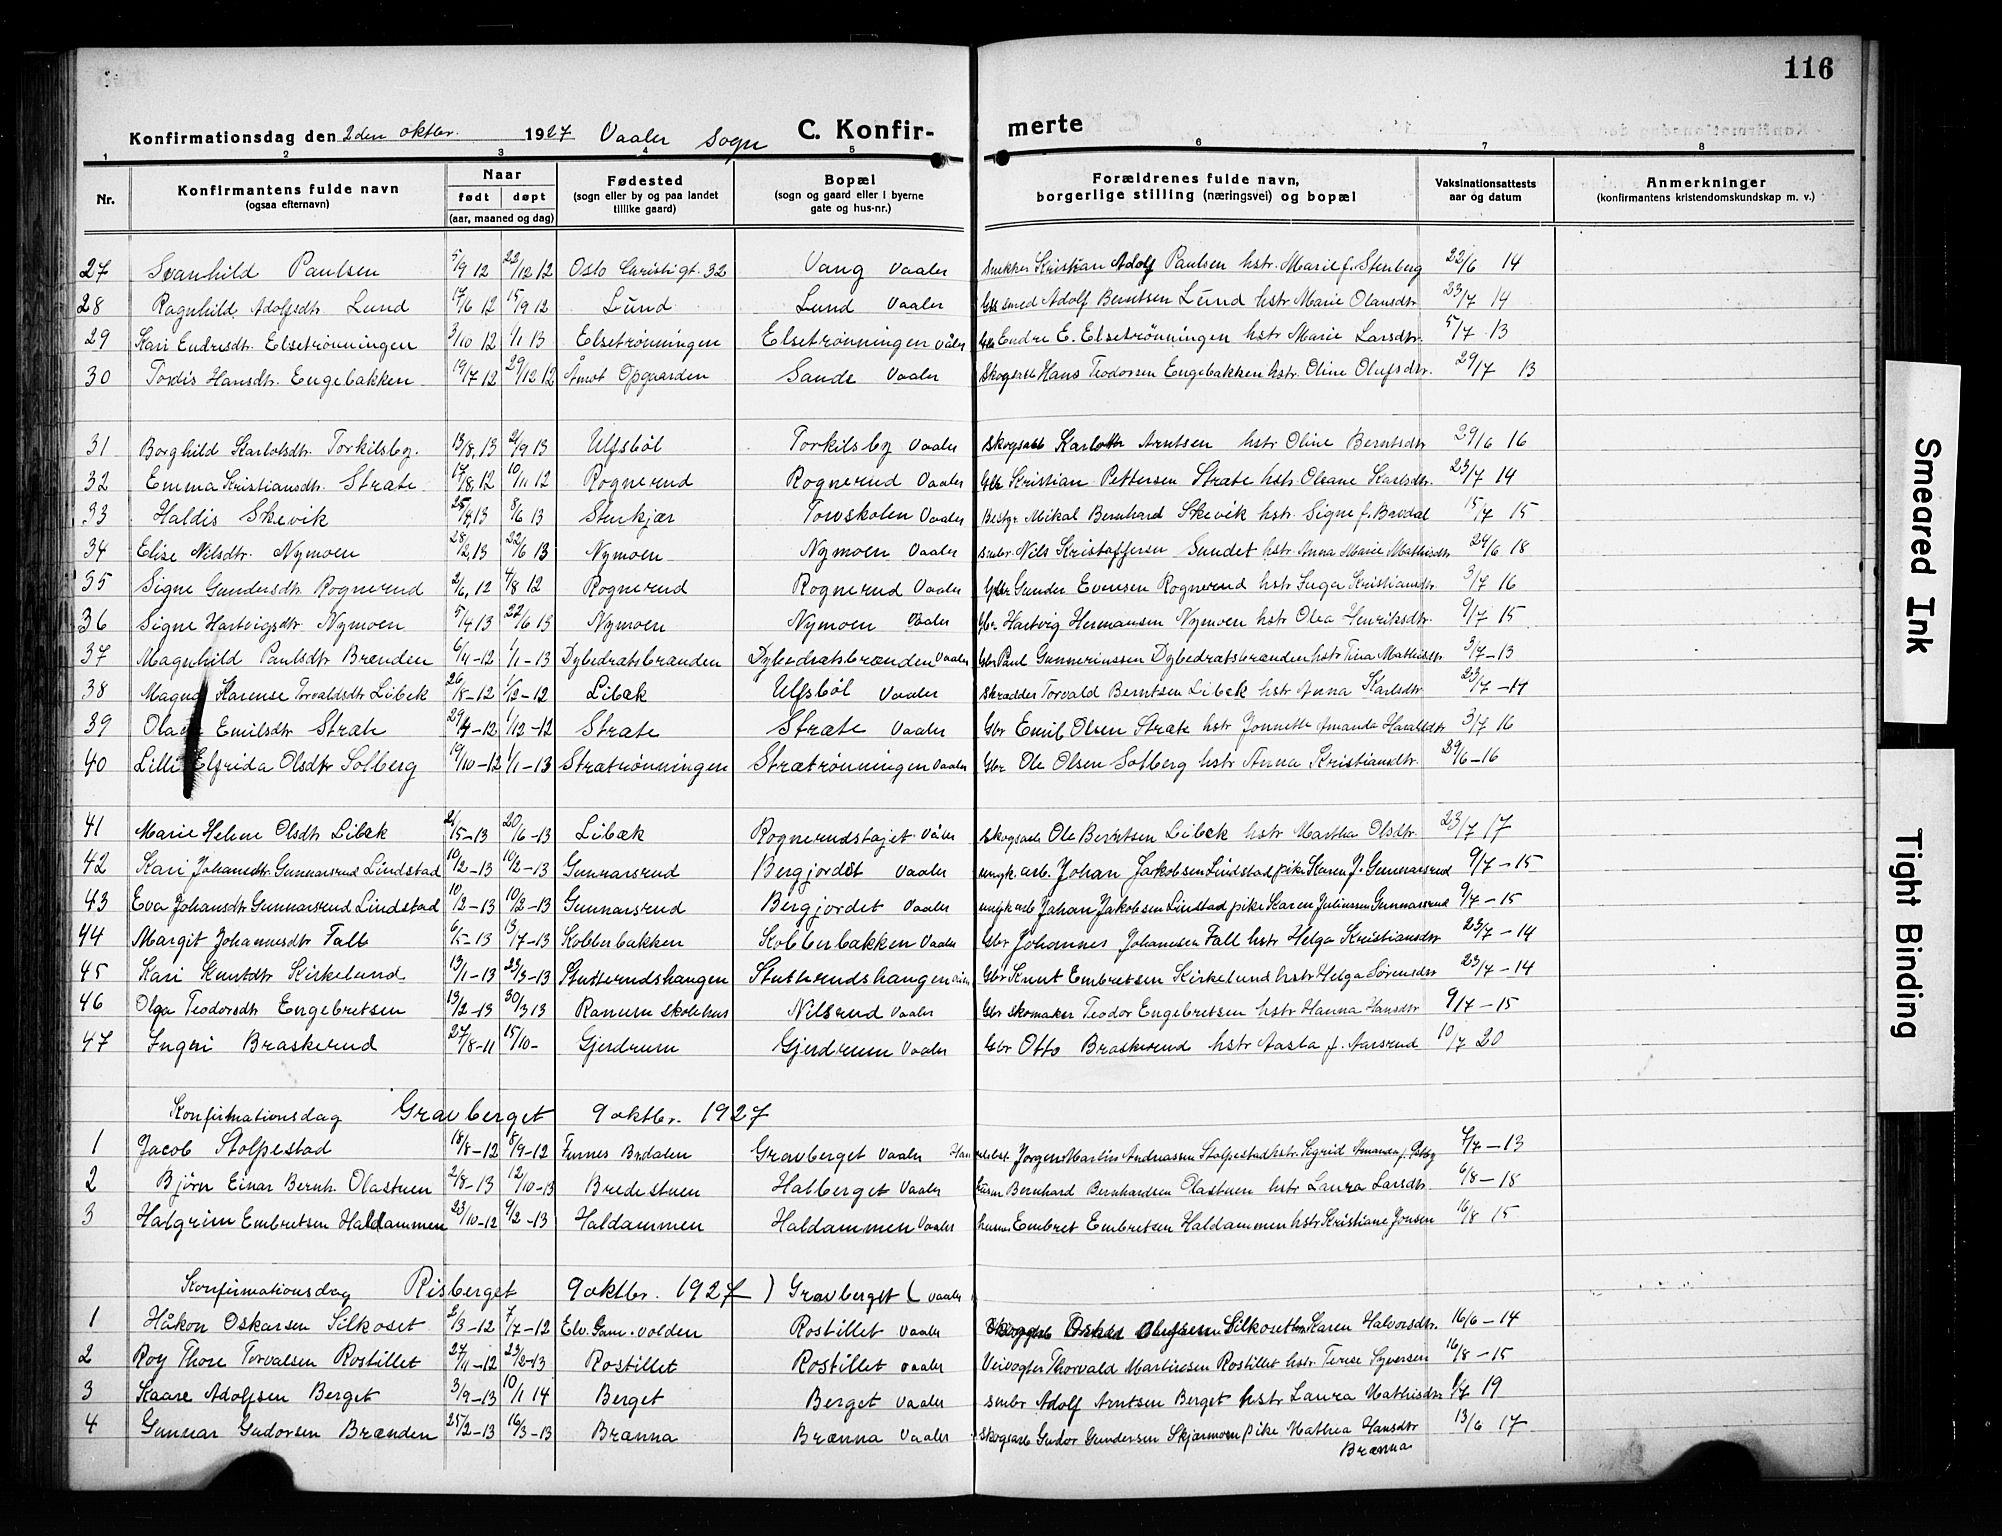 116
Konfirmationsdag den 2den oktbr. 1927 Vaaler Sogn C. Konfir- merte
1 2 3 4 5 6 7 8
Nr. Konfirmantens fulde navn (ogsaa efternavn) Naar født døpt (aar, maaned og dag) Fødested (sogn eller by og paa landet tillike gaard) Bopæl (sogn og gaard eller i byerne gate og hus-nr.) Forældrenes fulde navn, borgerlige stilling (næringsvei) og bopæl Vaksinationsattests aar og datum Anmerkninger (konfirmantens kristendomskundskap m. v.)
27 Svanhild Paulsen 5/9 12 22/12 12 Oslo Christigt. 32 Vang Vaaler Snekker Kristian Adolf Paulsen hstr. Marie f. Stenberg 22/6 14
28 Ragnhild Adolfsdtr. Lund 17/6 12 15/9 12 Lund Lund Vaaler Gbr smed Adolf Berntsen Lund hstr Marie Olausdtr 23/7 14
29 Kari Endresdtr. Elsetrønningen 3/10 12 1/1 13 Elsetrønningen Elsetrønningen Våler Gbr Endre E. Elsetrønningen hstr Marie Larsdtr. 5/7 13
30 Tordis Hansdtr. Engebakken 19/7 12 29/12 12 Åmot Opgaarden Sande Vaaler Skogsarb Hans Teodorsen Engebakken hstr. Oline Olufsdtr. 29/7 13
31 Borghild Karlotsdtr. Torkilsby. 13/8, 13 21/9 13 Ulfsbøl Torkilsby Vaaler Skogsarb Karlot Arntsen hstr Oline Berntsdtr 29/6 16
32 Emma Kristiansdtr. Stræte 17/8, 12 10/11 12 Rognerud Rognerud Vaaler Gbr Kristian Pettersen Stræte hstr. Oleane Karlsdtr. 23/7 14
33 Haldis Skevik 25/4, 13 8/6 13 Stenkjær Towskolen Vaaler Bestyr. Mikal Bernhard Skevik hstr. Signe f. Bredal 15/7 15
34 Elise Nilsdtr. Nymoen 28/2, 13 22/6 13 Nymoen Nymoen Vaaler Smbr Nils Kristoffersen Sundet hstr Anna Marie Mathisdtr 24/6 18
35 Signe Gundersdtr Rognerud 2/6, 12 4/8 12 Rognerud Rognerud Vaaler Gbr Gunder Evensen Rognerud hstr Inga Kristiansdtr. 3/7 16
36 Signe Hartvigsdtr Nymoen 5/4 13 22/6 13 Nymoen Nymoen Vaaler Gbr Hartvig Hermansen Nymoen hstr Olea Henriksdtr. 9/7 15
37 Magnhild Paulsdtr Brænden 6/11-12 1/1-13 Dybedratsbrænden Dybedratsbrænden Vaaler Gbr Paul Gunneriussen Dybedratsbrænden hstr Tina Mathisdtr 3/7-13
38 Magna Karense Torvaldsdtr Libæk 26/8-12 1/12-12 Libæk Ulfsbøl Vaaler Skrædder Torvald Berntsen Libæk hstr Anna Karlsdtr 23/7-14
39 Olau Emilsdtr Stræte 29/4-12 1/12-12 Stræte Stræte Vaaler Gbr Emil Olsen Stræte hstr Jonnette Amanda Haraldsdtr 3/7 16
40 Lilli Elfrida Olsdtr Solberg 19/10-12 1/1-13 Strætrønningen Strætrønningen Vaaler Gbr Ole Olsen Solberg hstr Anna Kristiansdtr. 29/6-16
41 Marie Helene Olsdtr Libæk 24/5-13 20/6-13 Libæk Rognerudstajet Våler Skogsarb Ole Berntsen Libæk hstr Martha Olsdtr 23/7 17
42 Kari Johansdtr. Gunnarsrud Lindstad 10/2-13 10/2-13 Gunnarsrud Bergjordet Vaaler ungk.arb. Johan Jakobsen Lindstad pike Karen J. Gunnarsrud 9/7-15
43 Eva Johansdtr Gunnarsrud Lindstad 10/2-13 10/2-13 Gunnarsrud Bergjordet Vaaler ungk arb Johan Jakobsen Lindstad pike Karen Juliussen Gunnarsrud 9/7-15
44 Margit Johannesdtr Fall 6/5-13 13/7-13 Kobberbakken Kobberbakken Vaaler Gbr Johannes Johannesen Fall hstr Helga Kristiansdtr 23/7-14
45 Kari Knutdtr Kirkelund 13/1-13 23/3-13 Stutterudshangen Stutterudshangen Vaaler Gbr Knut Embretsen Kirkelund hstr Helga Sørensdtr 23/7-14
46 Olga Teodorsdtr Engebretsen 13/2-13 30/3 13 Ranum skolehus Nilsrud Vaaler Gbr Skomaker Teodor Engebretsen hstr Hanna Hansdtr 9/7-15
47 Ingri Braskerud 27/8-11 15/10- Gjerdrum Gjerdrum Vaaler Gbr Otto Braskerud hstr Aasta f. Aarsrud 10/7 20
Konfirmationsdag Gravberget 9 oktbr. 1927
1 Jacob Stolpestad 18/8-12 8/9-12 Finnes Bndalen Gravberget Vaaler Jørgen Martin Andreassen Stolpestad hstr. Sigrid Amanda f. 7/7-13
2 Bjørn Einar Bernh. Olastuen 2/8-13 12/10-13 Bredestuen Halberget Vaaler Bernhard Bernhardsen Olastuen hstr Laura Larsdtr. 6/8-18
3 Halgrim Embretsen Haldammen 23/10-12 9/2-13 Haldammen Haldammen Vaaler husm Embret Embretsen Haldammen hstr Kristiane Jonsen 16/8 15
Konfirmationsdag Risberget 9 oktbr. 1927 ) Gravberget ( Vaaler
1 Håkon Oskarsen Silkoset 2/3-12 7/7-12 Elv. Gam.volden Rostillet Vaaler Skogsarb Oskar Olufsen Silkoset hstr Karen Halvorsdtr. 16/6-14
2 Roy Thore Torvalsen Rostillet 27/11-12 23/2-13 Rostillet Rostillet Vaaler Veivogter Thorvald Martinsen Rostillet hstr. Terese Syversen 16/8-15
3 Kaare Adolfsen Berget 3/9-13 10/1 14 Berget Berget Vaaler Smbr Adolf Arntsen Berget hstr Laura Mathisdtr 9/7 19
4 Gunnar Gudorsen Brænden 25/2-13 16/3-13 Brænna Brænna Vaaler Skogsarb Gudor Gundersen Skjærmoen pike Mathea Hansdtr 13/6 17
Brænna
Smeared Ink
Tight Binding